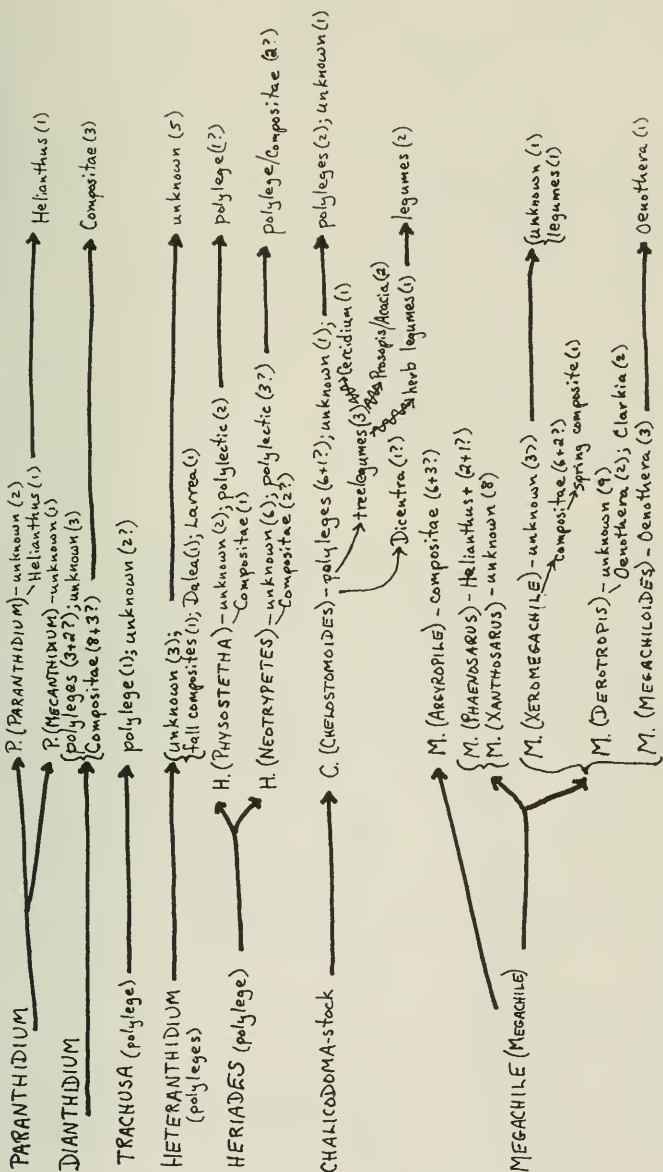 PARANTHIDIUM
P. (PARANTHIDIUM) - unknown (2)
Helianthus (1)
Helianthus (1)
P. (MECANTHIDIUM) - unknown (1)
DIANTHIDIUM
{polyleges (3+2?); unknown (3)
Compositae (8+3?)
Compositae (3)
TRACHUSA (polylege)
polylege (1); unknown (2?)
HETERANTHIDIUM
(polyleges)
{unknown (3);
fall composites (1); Dalea (1); Larrea (1)
unknown (5)
HERIADES (polylege)
H. (PHYSOSTETHA) - unknown (2); polylectic (2)
Compositae (1)
polylege (1?)
H. (NEOTRYPETES) - unknown (6); polylectic (3?)
Compositae (2?)
polylege/Compositae (2?)
CHALICODOMA-stock
C. (CHELOSTOMOIDES) - polyleges (6+1?); unknown (1);
polyleges (2); unknown (1)
tree legumes (3)
Cercidium (1)
Prosopis/Acacia (2)
herb legumes (1)
legumes (2)
Dicentra (1?)
MEGACHILE (MEGACHILE)
M. (ARGYROPILE) - compositae (6+3?)
{M. (PHAENOSARUS) - Helianthus+ (2+1?)
M. (XANTHOSARUS) - unknown (8)
M. (XEROMEGACHILE) - unknown (37)
Compositae (6+2?)
spring composite (1)
{unknown (1)
legumes (1)
M. (DEROTROPIS) - unknown (9)
Oenothera (2); Clarkia (2)
M. (MEGACHILOIDES) - Oenothera (3)
Oenothera (1)